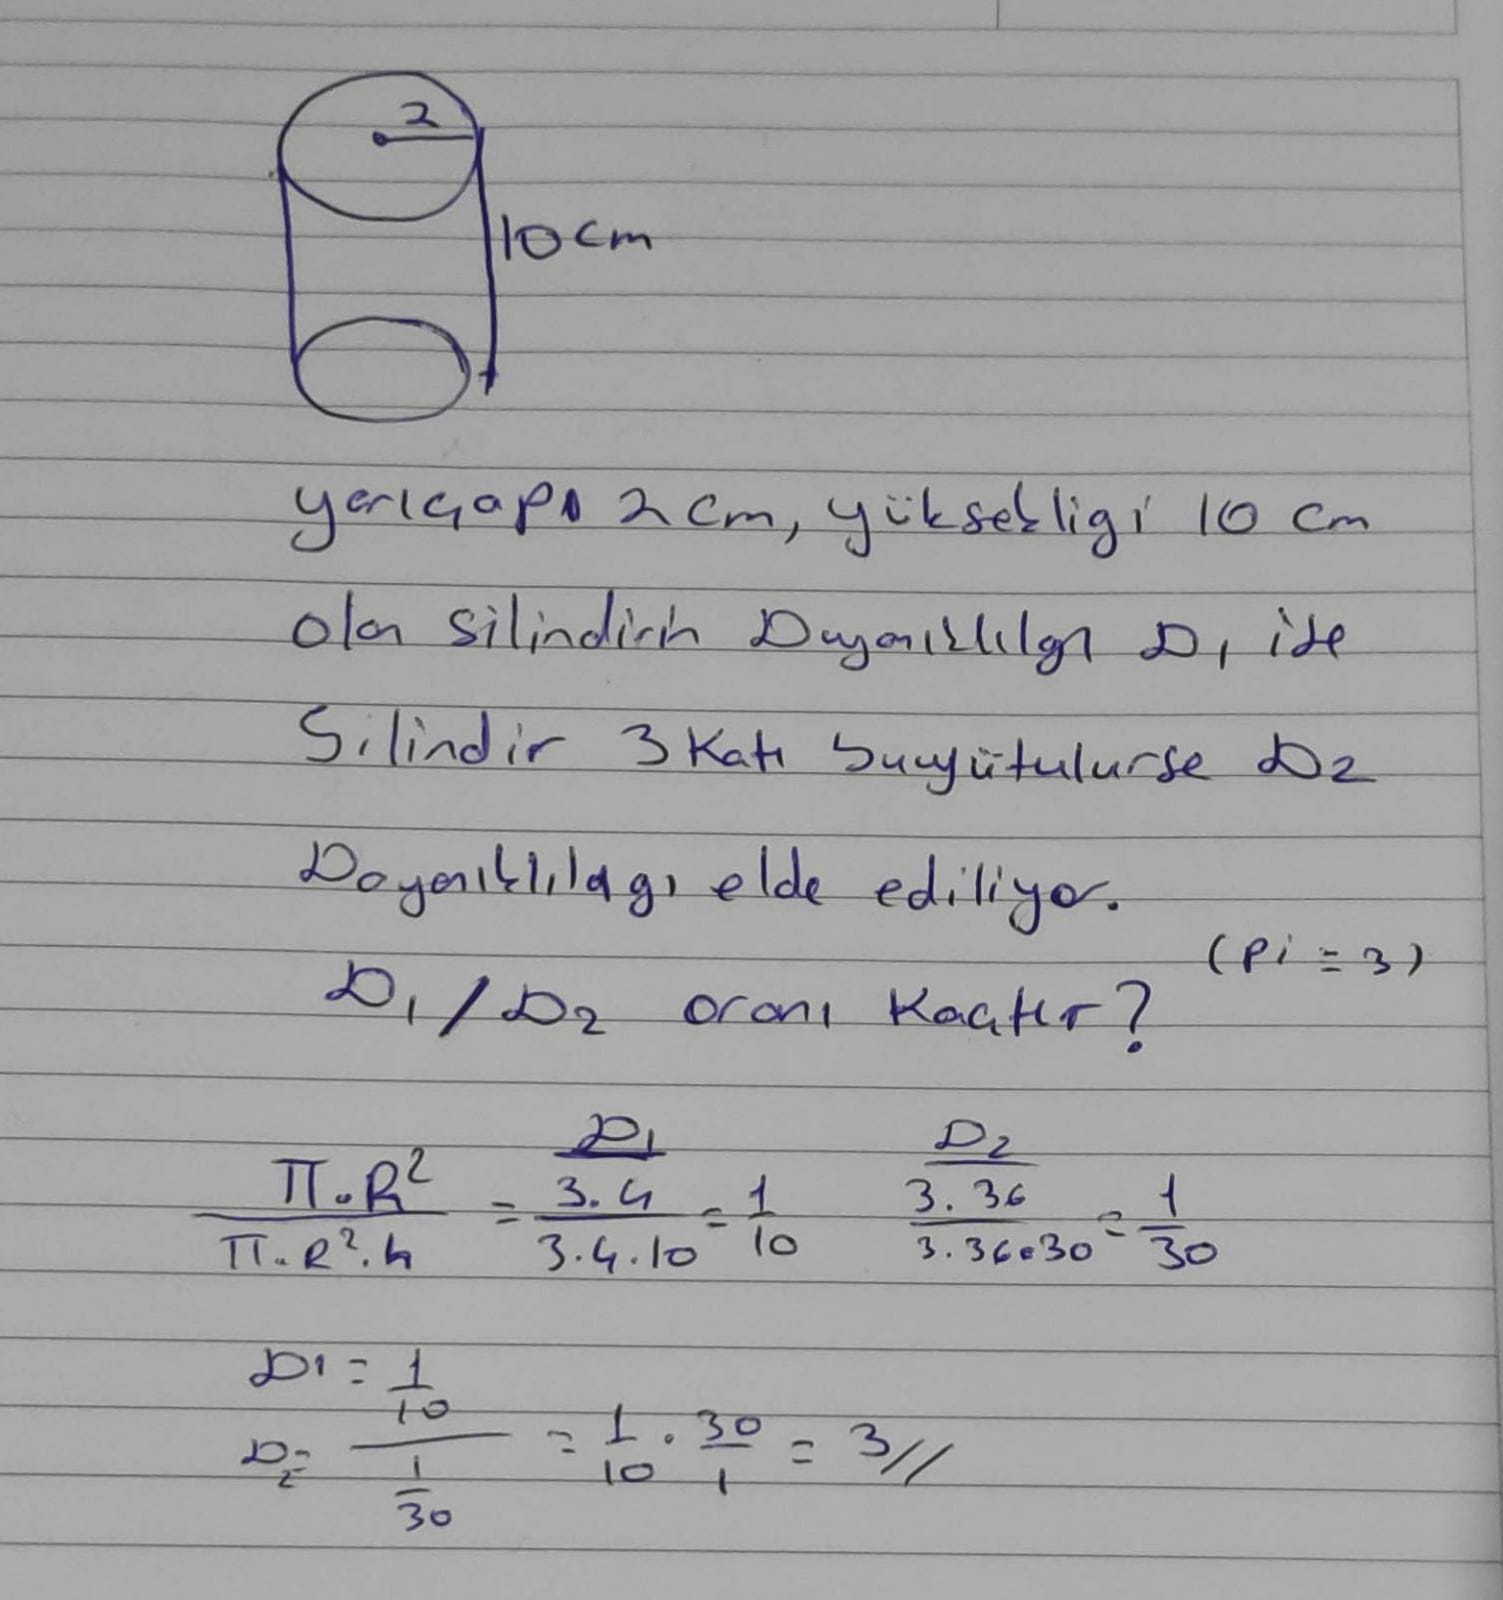 2
10 cm
yarıçapı 2 cm, yüksekligi 10 cm
olan silindirin Dayanıklılgı D1 ise
Silindir 3 Katı büyütulurse D2
Dayanıklılıgı elde ediliyor.
(pi = 3)
D1 / D2 oranı Kaçtır?
D1 D2
π.R² / π.R².h = 3.4 / 3.4.10 = 1/10 3.36 / 3.36.30 = 1/30
D1 = 1/10
D2 = 1/30 = 1/10 . 30/1 = 3//